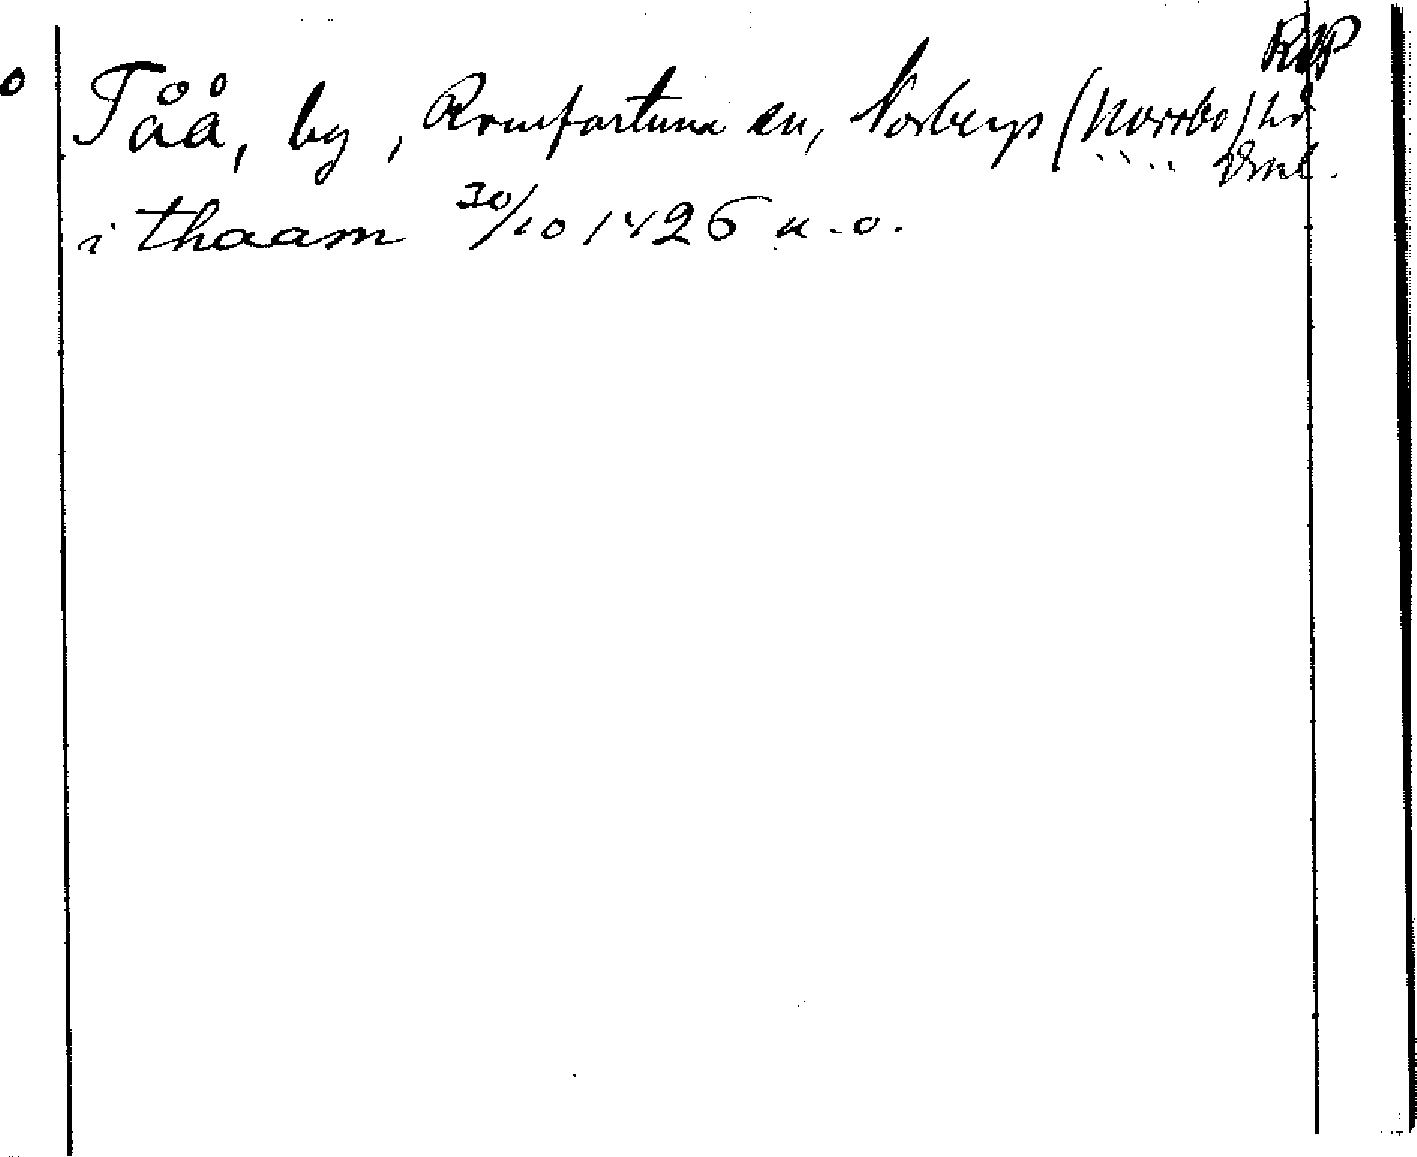 RAP
Tåå, by, Romfartuna sn, Norbergs (Norrbo) hd
Vsml.
i thaam 30/10 1426 u.o.